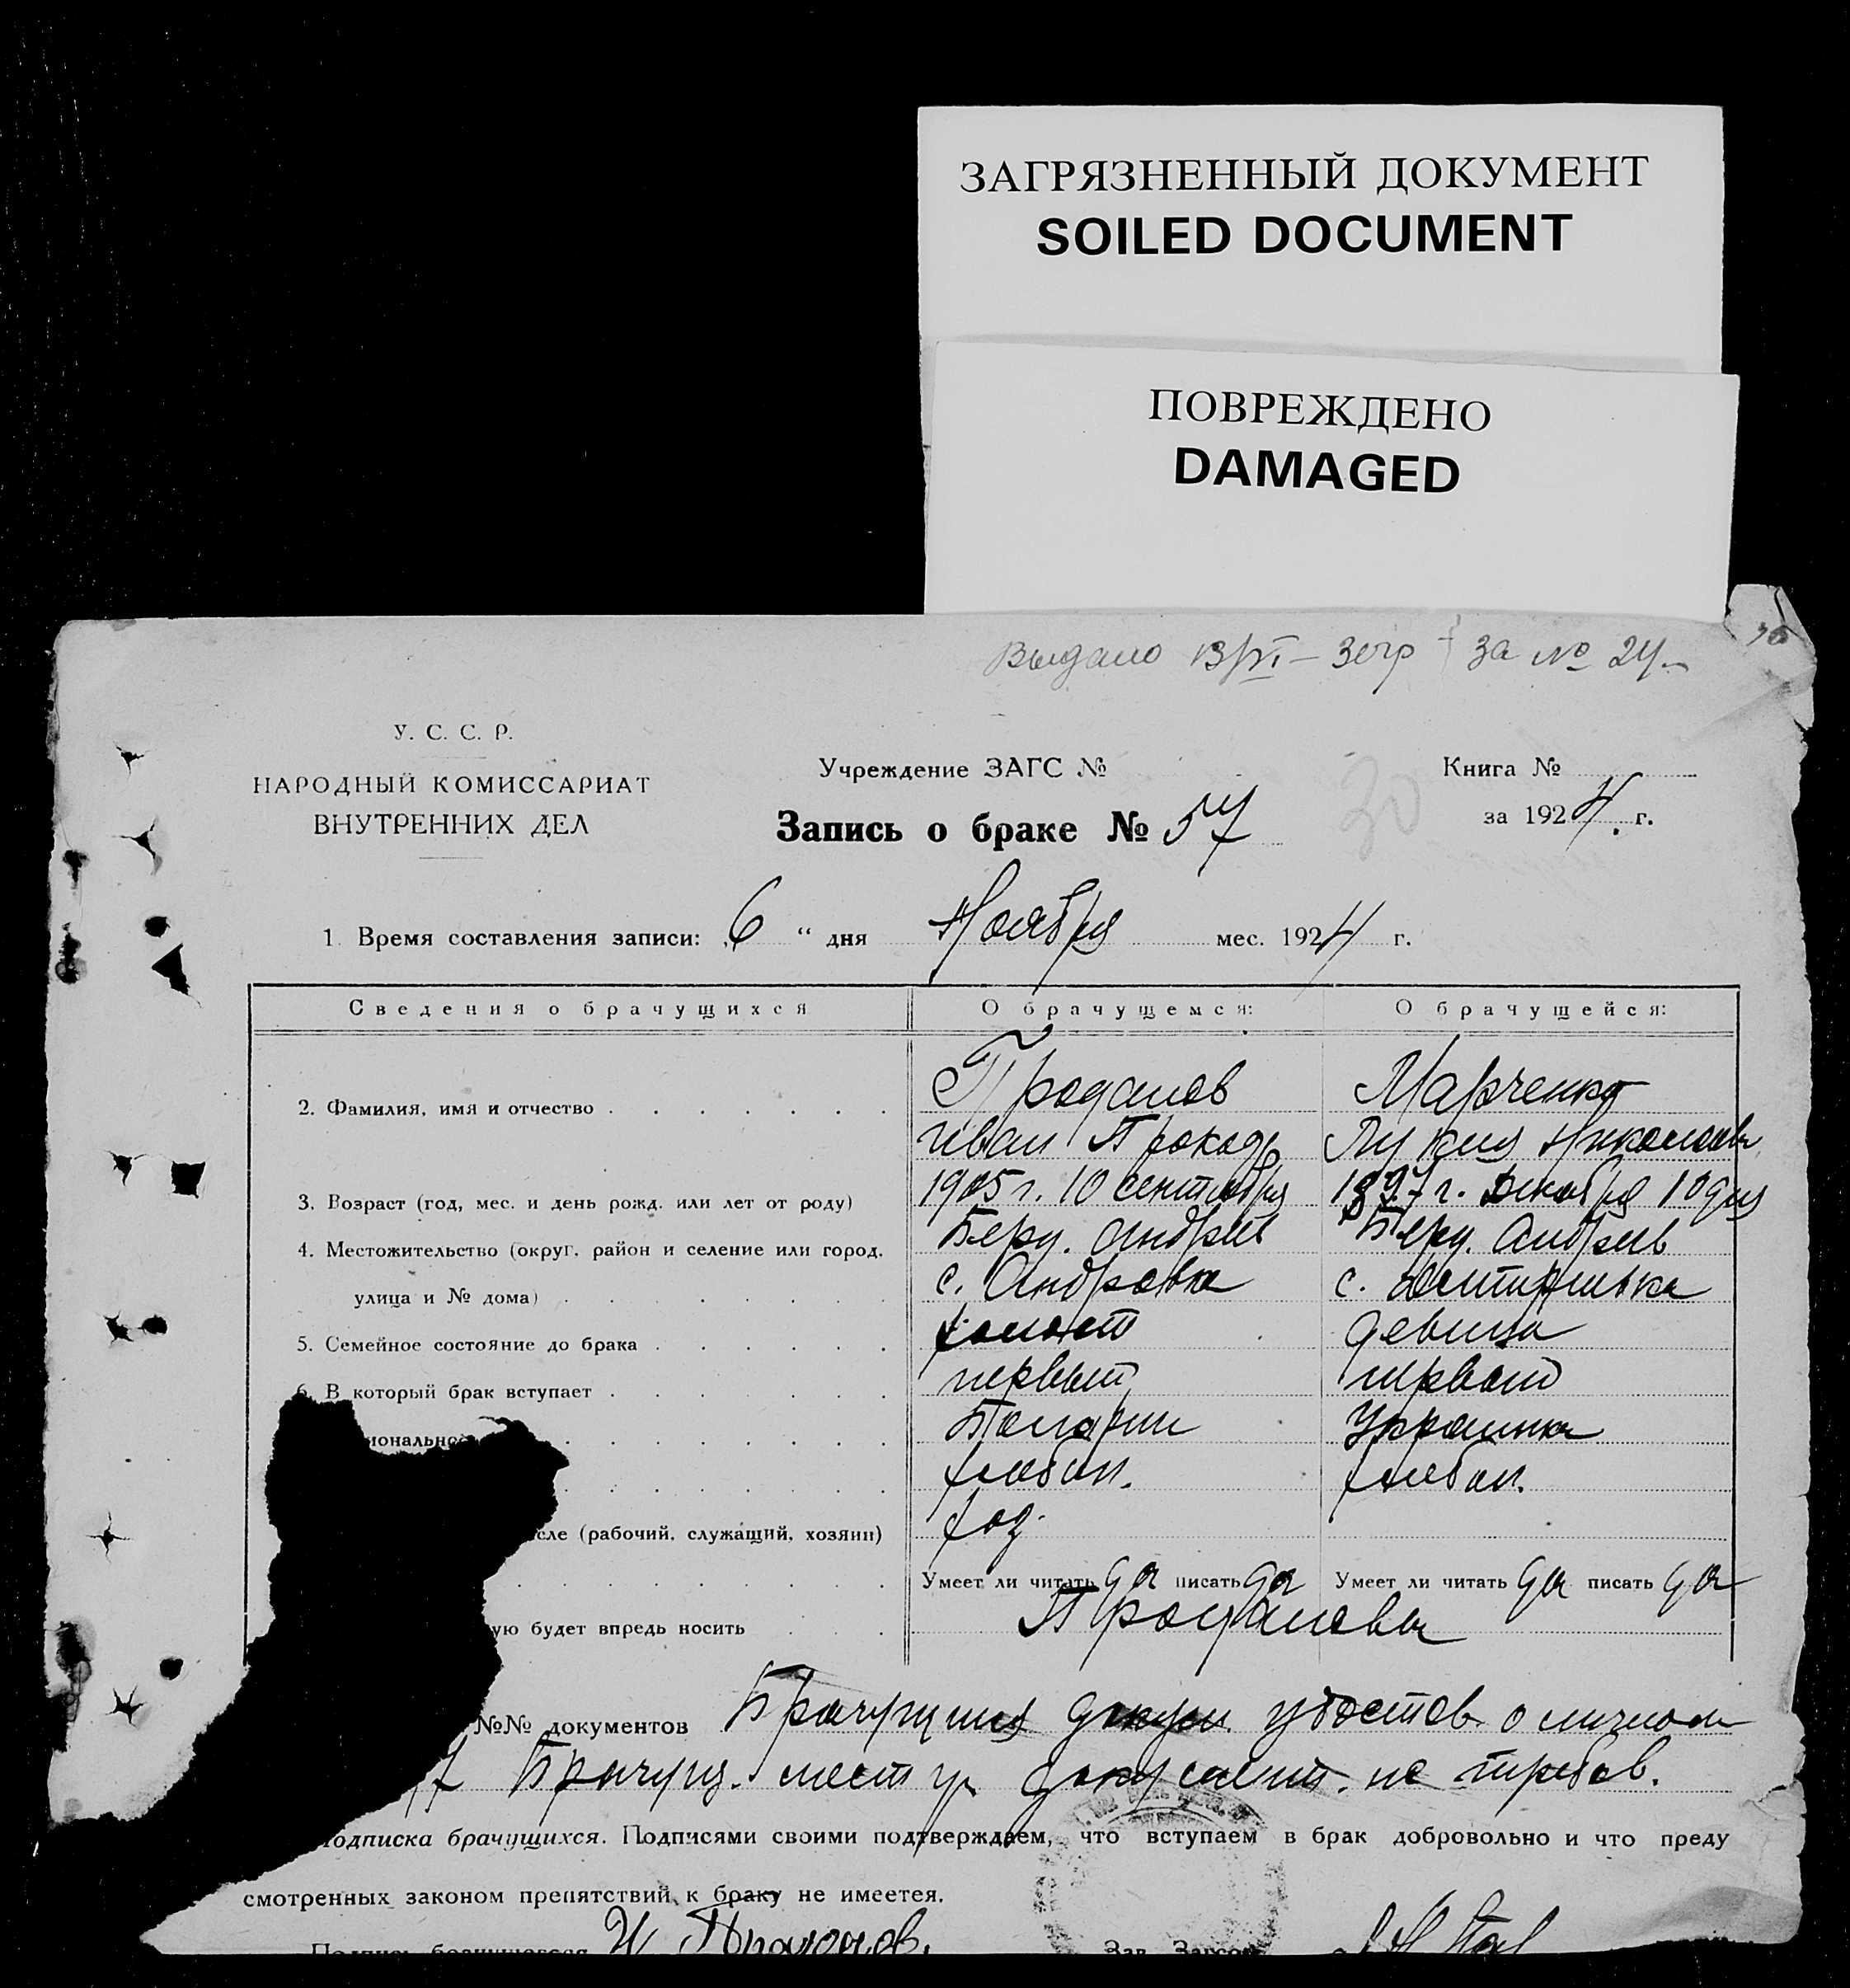 ЗАГРЯЗНЕННЫЙ ДОКУМЕНТ
SOILED DOCUMENT
ПОВРЕЖДЕНО
DAMAGED
Выдано за № 24
У. С. С. Р.
НАРОДНЫЙ КОМИССАРИАТ
ВНУТРЕННИХ ДЕЛ
Учреждение ЗАГС №
Книга №
за 1924 г.
Запись о браке № 57
30
1. Время составления записи: „6 “ дня Ноября мес. 1924 г.
Сведения о брачущихся О брачущемся: О брачущейся:
2. Фамилия, имя и отчество Проданов Марченко
Иван Прокоф Лукия Николаев
3. Возраст (год, мес. и день рожд. или лет от роду) 1905 г. 10 сентября 1897 г. Декабря 10 дня
4. Местожительство (округ, район и селение или город, Берд. Андреев Берд. Андреев
улица и № дома) с. Андровка с.
5. Семейное состояние до брака холост девица
6. В который брак вступает первый первый
иональнос Болгарин Украинка
хлебоп. хлебоп.
сле (рабочий, служащий, хозяин) хоз.
Умеет ли читать да писать да Умеет ли читать да писать да
ую будет впредь носить Продановы
№№ документов Брачущийся удостов. о личном
Брачущ. документ. не требов.
Подписка брачущихся. Подписями своими подтверждаем, что вступаем в брак добровольно и что преду
смотренных законом препятствий к браку не имеется.
Подпись брачущегося И Проданов. Зав. Загсом